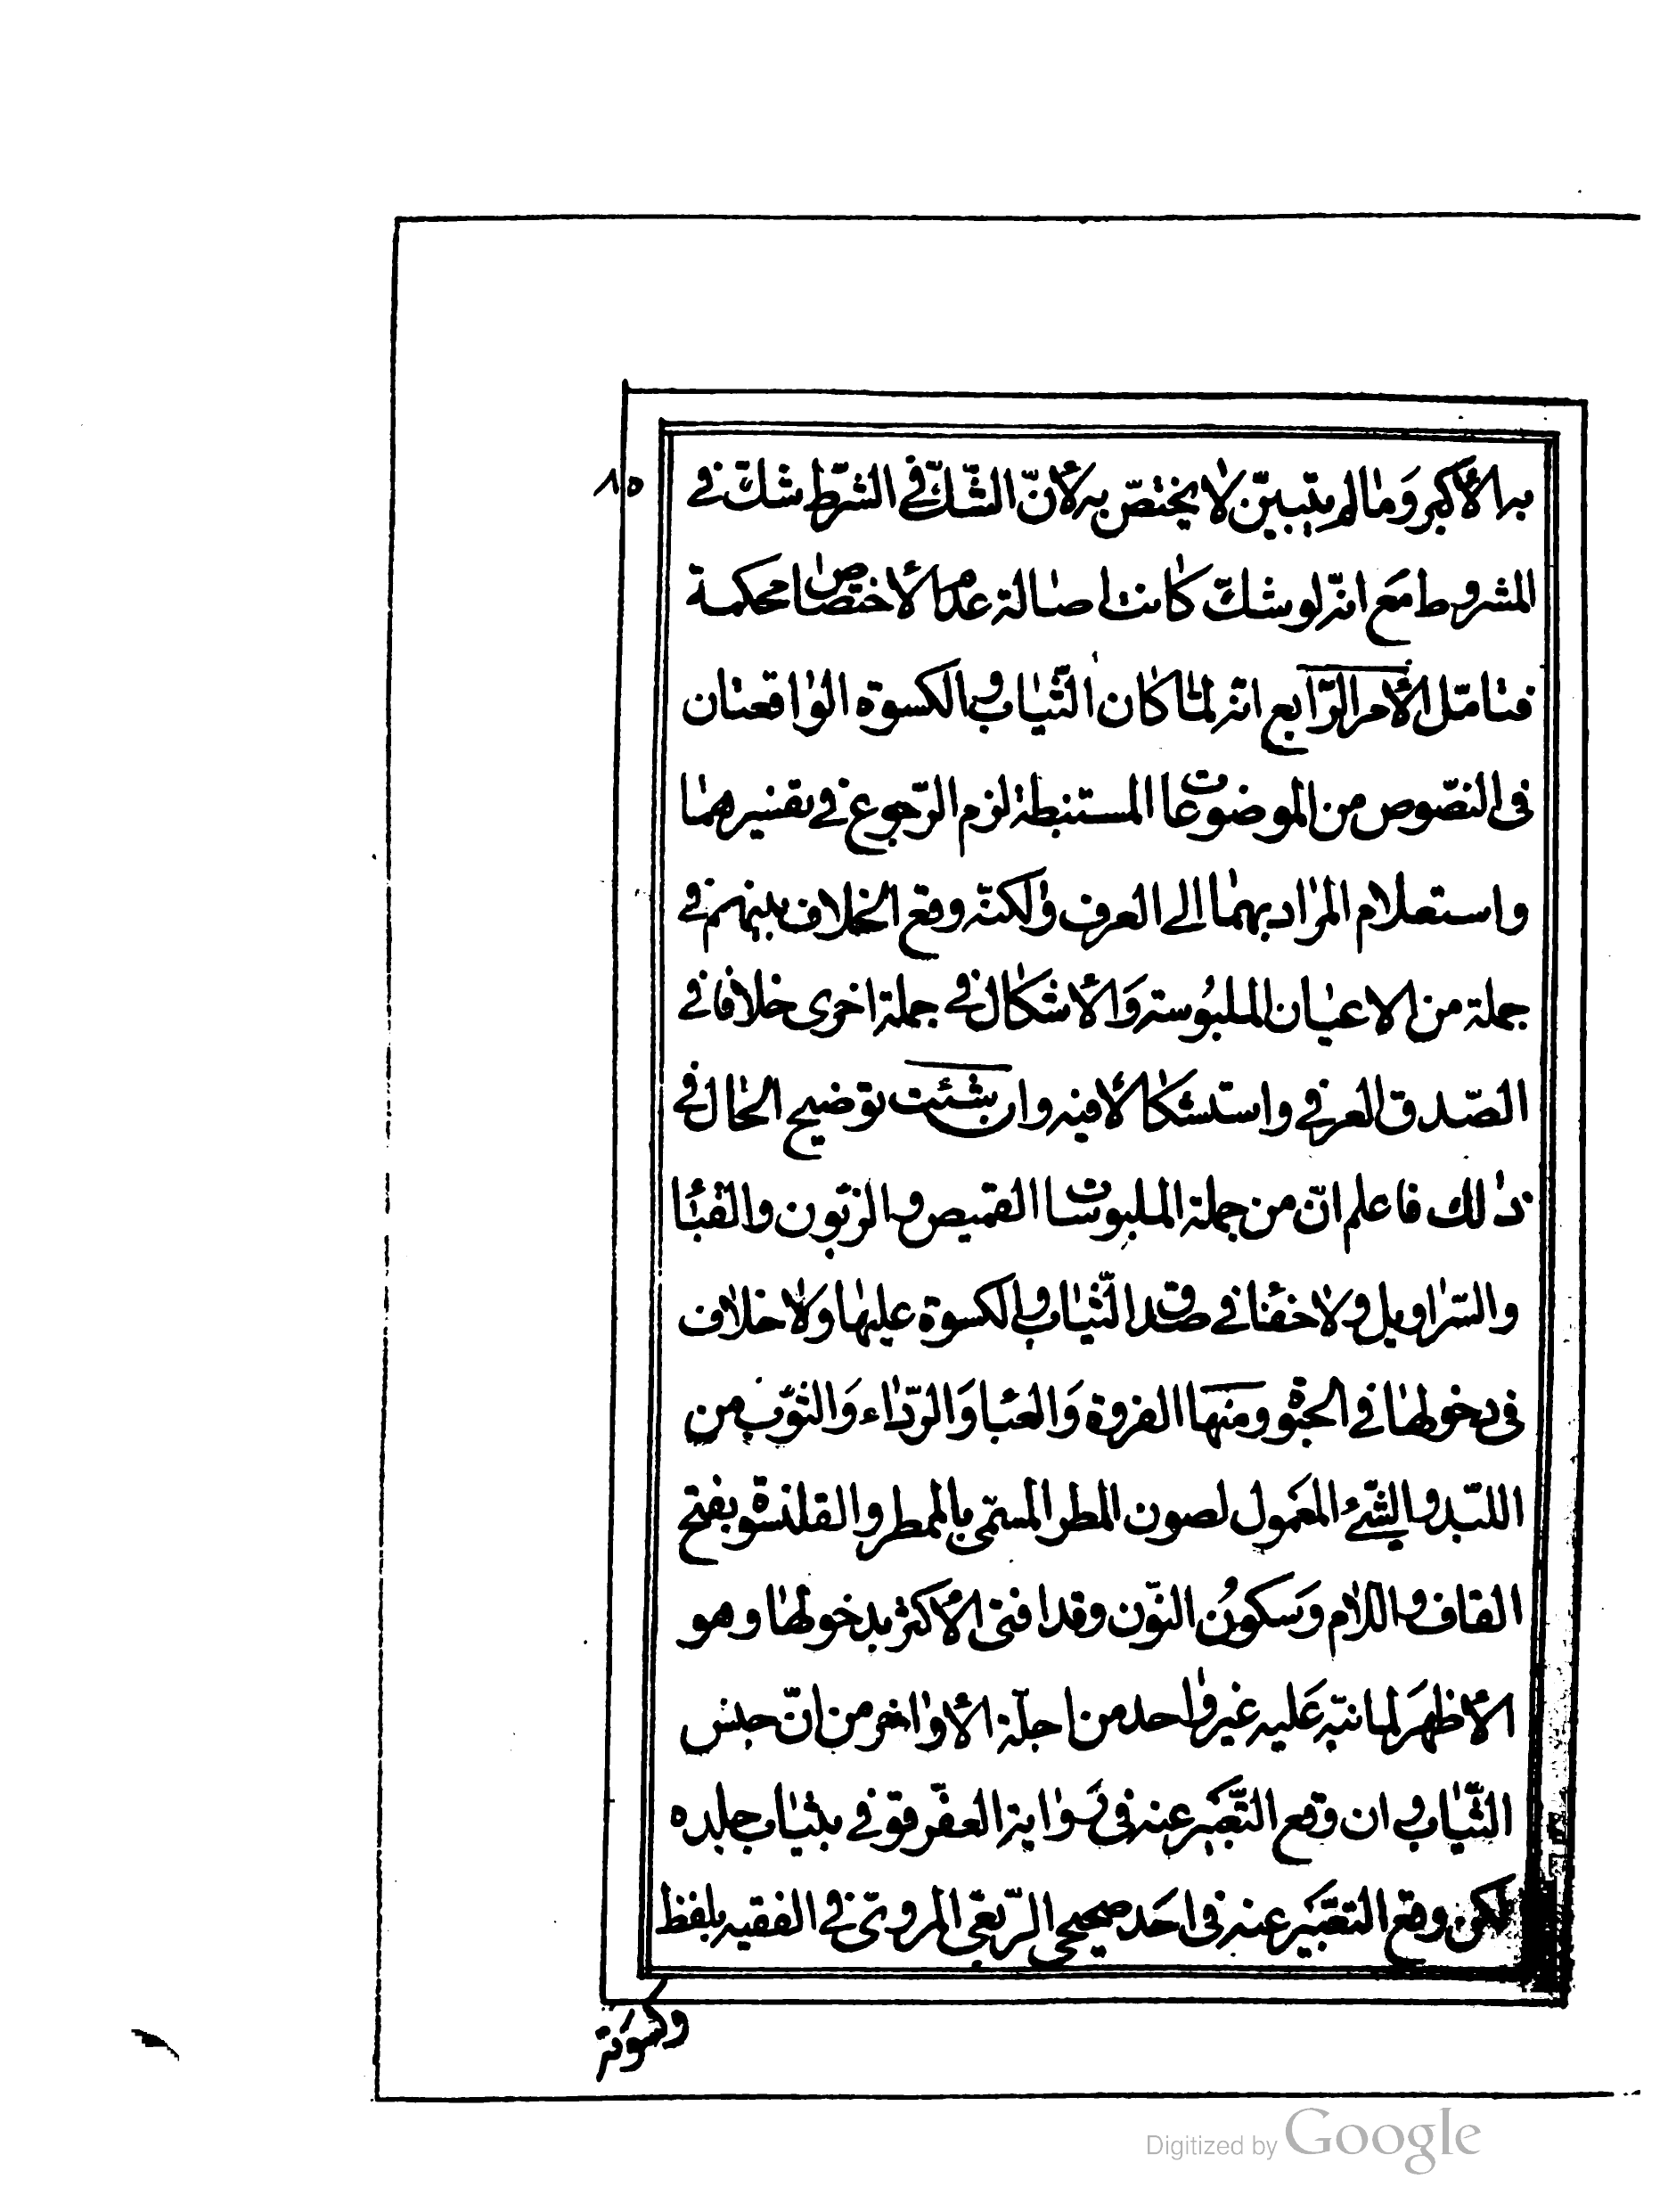 ٨٥
به الأكبر وَمٰا لم يتبيّن لا يختصّ به لأنّ الشّكّ فى الشّرط شكّ فى
المشروط مَع انّه لو شكّ كٰانت اصٰالة عدم الأختصٰاص محكمة
فتامّل الأمر الرّابع انّه لمّا كٰان الثّيٰاب والكسوة الوٰاقعتان
فى النصّوص من الموضوعات المستنبطة لزم الرّجوع فى تفسيرهمٰا
واستعلام المرٰاد بهمٰا الى العرف وٰلكنّه وقع الخلاف بينهم فى
جملة من الاعيٰان الملبُوسة وَالأشكٰال فى جملة اخرى خلافا فى
الصّدق العرفى واستشكٰالا فيه وان شئت توضيح الحٰال فى
ذٰلك فاعلم انّ من جملة الملبوسات القميص والزبّون والقبٰا
والسّرٰاويل ولا خفٰا فى صدق الثّيٰاب والكسوة عليهٰا ولا خلاف
فى دخولهٰا فى الحبوة ومنهٰا الفروة وَالعبٰا وَالرّدٰاء وَالثّوب من
اللبّد والشّئ المعَمول لصون المطر المسمّى بالممطر والقلنسوة بفتح
القاف واللام وَسكوُن النّون وقد افتى الأكثر بدخولهٰا وهو
الأظهَر لما نبّه عَليه غير وٰاحد من اجلّة الأوٰاخر من انّ حبس
الثّيٰاب وان وقع التّعبَير عنه فى رَوٰاية العقرقوفى بثيٰاب جلده
لكن وقع التعبَير عنه فى احَد صحيحى الرّبعّى المروىّ فى الفقيه بلفظ
وكسوَته
Digitized by Google